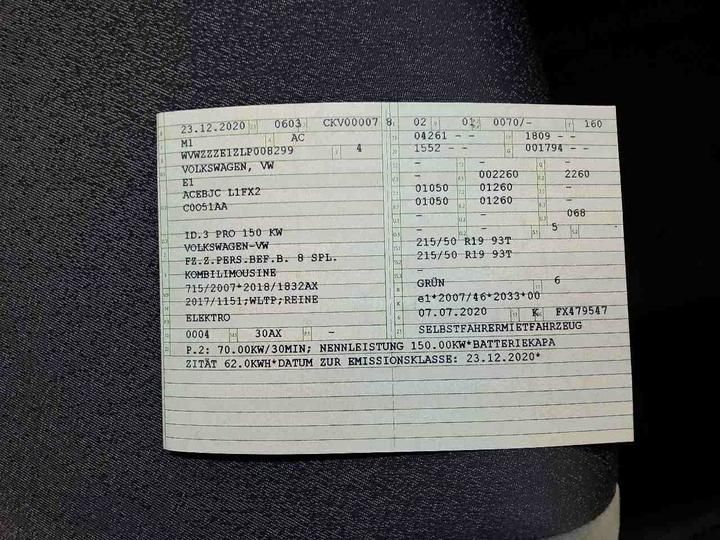 23.12.2020 0603 CKV00007 8
M1 AC
WVWZZZE1ZLP008299 4
VOLKSWAGEN, VW
E1
ACEBJC L1FX2
C0051AA
ID.3 PRO 150 KW
VOLKSWAGEN-VW
FZ.Z.PERS.BEF.B. 8 SPL.
KOMBILIMOUSINE
715/2007*2018/1832AX
2017/1151;WLTP;REINE
ELEKTRO
0004 30AX -
02 01 0070/- 160
04261 - - 1809 - -
1552 - - 001794 - -
- - -
- 002260 2260
01050 01260 -
01050 01260 -
- - 068
- - 5 -
215/50 R19 93T
215/50 R19 93T
-
GRÜN 6
e1*2007/46*2033*00
07.07.2020 K FX479547
SELBSTFAHRERMIETFAHRZEUG
P.2: 70.00KW/30MIN; NENNLEISTUNG 150.00KW*BATTERIEKAPA
ZITÄT 62.0KWH*DATUM ZUR EMISSIONSKLASSE: 23.12.2020*